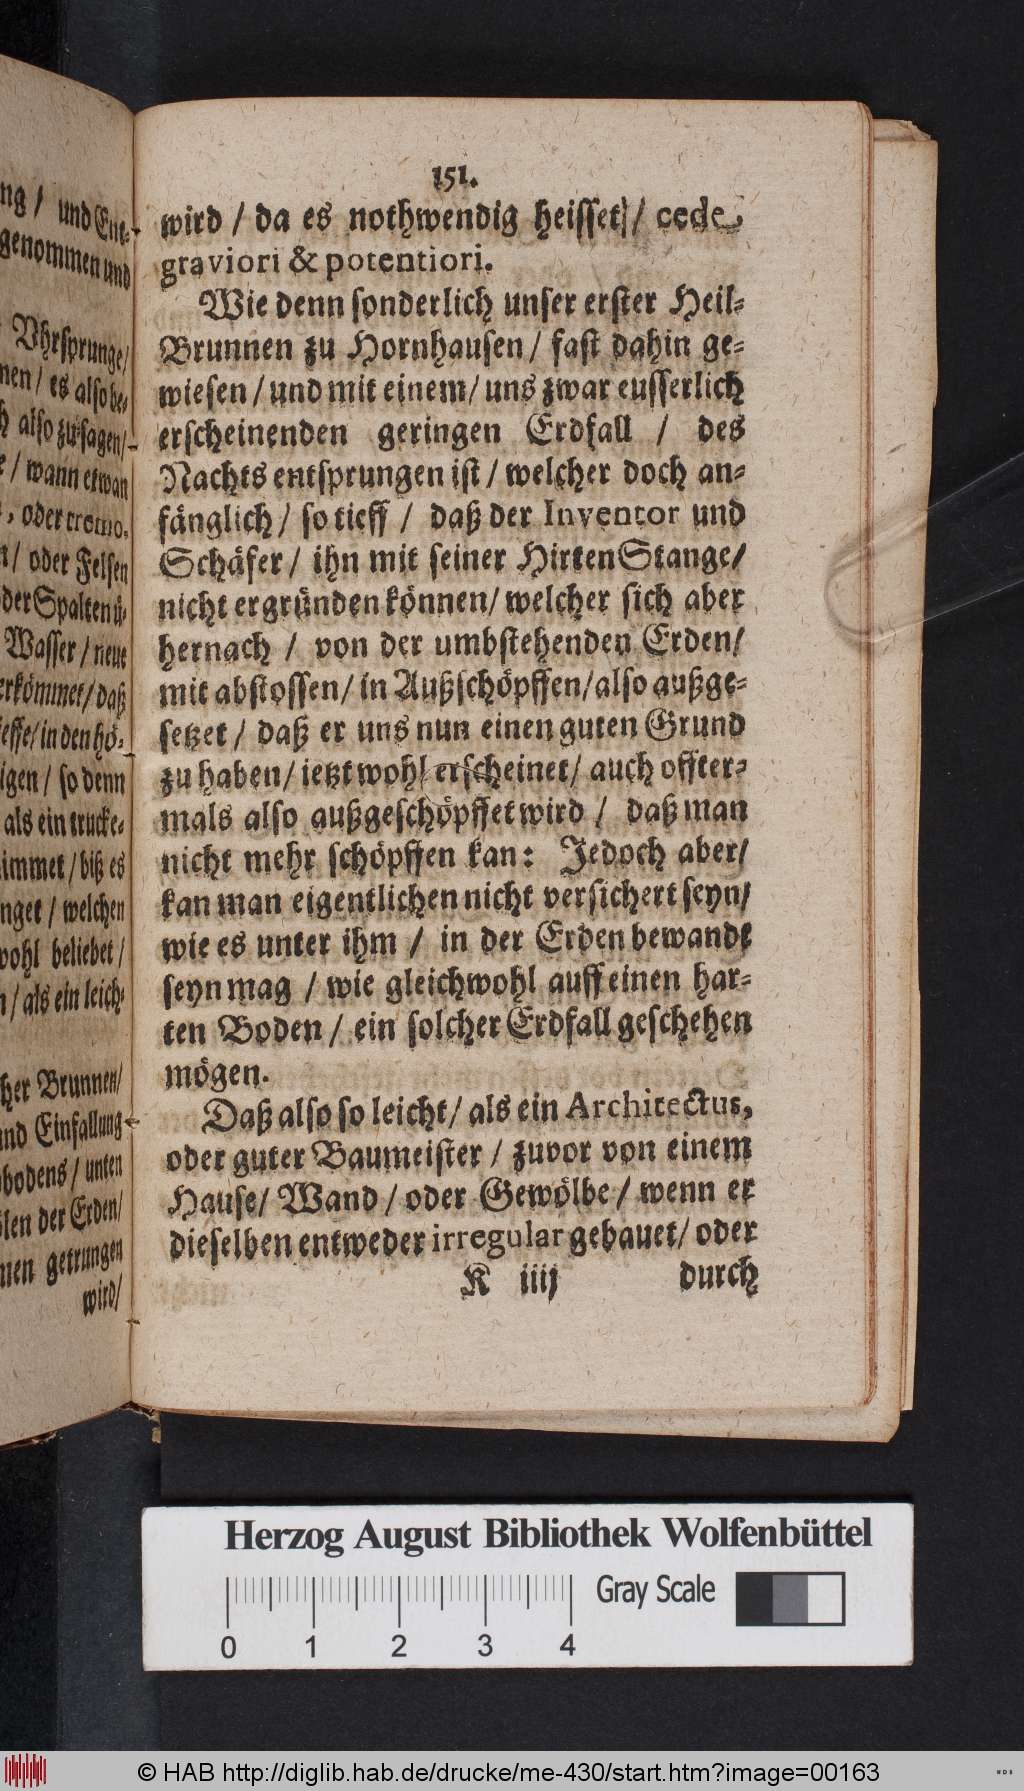 ng / und Ent-
genommen und
Vhrsprunge/
nen / es also be-
h also zu sagen/
e / wann etwan
, oder tremo,
n / oder Felsen
der Spalten ü-
Wasser / neue
erkömmet / daß
ieffe / in den hö-
igen / so denn
als ein trucke-
immet / biß es
nget / welchen
wohl beliebet /
n / als ein leich-
cher Brunnen/
und Einfallung
bodens / unten
len der Erden/
nen getrungen
wird/
151.
wird / da es nothwendig heisset / cede
graviori & potentiori.
Wie denn sonderlich unser erster Heil-
Brunnen zu Hornhausen / fast dahin ge-
wiesen / und mit einem / uns zwar eusserlich
erscheinenden geringen Erdfall / des
Nachts entsprungen ist / welcher doch an-
fänglich / so tieff / daß der Inventor und
Schäfer / ihn mit seiner Hirten Stange/
nicht ergründen können / welcher sich aber
hernach / von der umbstehenden Erden/
mit abstossen / in Außschöpffen / also außge-
setzet / daß er uns nun einen guten Grund
zu haben / ietzt wohl erscheinet / auch offter-
mals also außgeschöpffet wird / daß man
nicht mehr schöpffen kan: Jedoch aber/
kan man eigentlichen nicht versichert seyn/
wie es unter ihm / in der Erden bewandt
seyn mag / wie gleichwohl auff einen har-
ten Boden / ein solcher Erdfall geschehen
mögen.
Daß also so leicht / als ein Architectus,
oder guter Baumeister / zuvor von einem
Hause / Wand / oder Gewölbe / wenn er
dieselben entweder irregular gebauet / oder
K iiij durch
Herzog August Bibliothek Wolfenbüttel
Gray Scale
0 1 2 3 4
© HAB http://diglib.hab.de/drucke/me-430/start.htm?image=00163